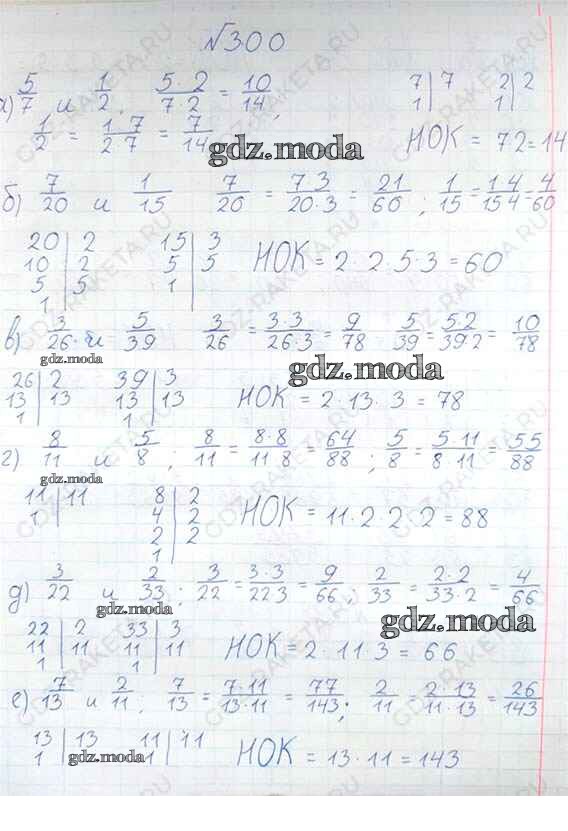 №300
а) 5/7 и 1/2, 5·2/7·2 = 10/14, 7|7 2|2
1/2 = 1·7/2·7 = 7/14 1| 1|
НОК = 7·2=14
gdz.moda
б) 7/20 и 1/15 7/20 = 7·3/20·3 = 21/60 ; 1/15 = 1·4/15·4 = 4/60
20|2 15|3
10|2 5|5 НОК = 2·2·5·3 = 60
5|5 1|
1|
в) 3/26 и 5/39 3/26 = 3·3/26·3 = 9/78 5/39 = 5·2/39·2 = 10/78
gdz.moda gdz.moda
26|2 39|3
13|13 13|13 НОК = 2·13·3 = 78
1| 1|
г) 8/11 и 5/8 ; 8/11 = 8·8/11·8 = 64/88 ; 5/8 = 5·11/8·11 = 55/88
gdz.moda
11|11 8|2
1| 4|2 НОК = 11·2·2·2 = 88
2|2
1|
д) 3/22 и 2/33 ; 3/22 = 3·3/22·3 = 9/66 ; 2/33 = 2·2/33·2 = 4/66
gdz.moda gdz.moda
22|2 33|3
11|11 11|11 НОК = 2·11·3 = 66
1| 1|
е) 7/13 и 2/11 ; 7/13 = 7·11/13·11 = 77/143 ; 2/11 = 2·13/11·13 = 26/143
13|13 11|11
1| 1| НОК = 13·11 = 143
gdz.moda
GDZ-RAKETA.RU